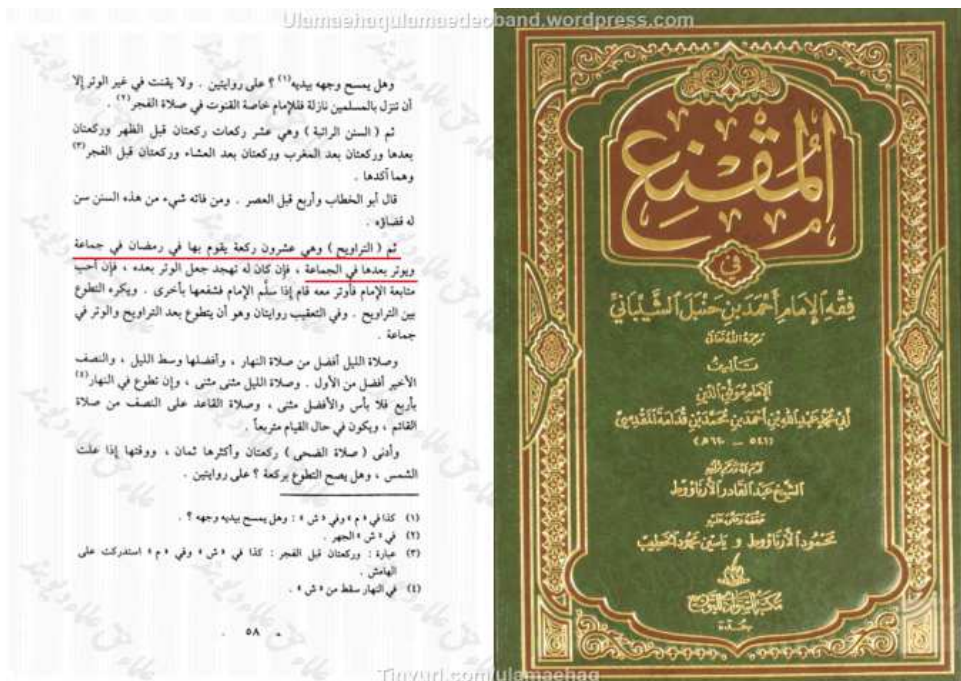 Ulamaehaqulamaedeoband.wordpress.com
وهل يمسح وجهه بيديه(١) ؟ على روايتين . ولا يقنت في غير الوتر إلا
أن تنزل بالمسلمين نازلة فللإمام خاصة القنوت في صلاة الفجر(٢) .
ثم ( السنن الراتبة ) وهي عشر ركعات ركعتان قبل الظهر وركعتان
بعدها وركعتان بعد المغرب وركعتان بعد العشاء وركعتان قبل الفجر(٣)
وهما آكدها .
قال أبو الخطاب وأربع قبل العصر . ومن فاته شيء من هذه السنن سن
له قضاؤه .
ثم ( التراويح ) وهي عشرون ركعة يقوم بها في رمضان في جماعة
ويوتر بعدها في الجماعة ، فإن كان له تهجد جعل الوتر بعده ، فإن أحب
متابعة الإمام فأوتر معه قام إذا سلَّم الإمام فشفعها بأخرى . ويكره التطوع
بين التراويح . وفي التعقيب روايتان وهو أن يتطوع بعد التراويح والوتر في
جماعة .
وصلاة الليل أفضل من صلاة النهار ، وأفضلها وسط الليل ، والنصف
الأخير أفضل من الأول . وصلاة الليل مثنى مثنى ، وإن تطوع في النهار(٤)
بأربع فلا بأس والأفضل مثنى ، وصلاة القاعد على النصف من صلاة
القائم ، ويكون في حال القيام متربعاً .
وأدنى ( صلاة الضحى ) ركعتان وأكثرها ثمان ، ووقتها إذا علت
الشمس ، وهل يصح التطوع بركعة ؟ على روايتين .
(١) كذا في « م » وفي « ش » : وهل يمسح بيديه وجهه ؟ .
(٢) في « ش » الجهر .
(٣) عبارة : وركعتان قبل الفجر : كذا في « ش » وفي « م » استدركت على
الهامش .
(٤) في النهار سقط من « ش » .
٥٨
المقنع
في
فقه الإمام أحمد بن حنبل الشيباني
رحمه الله تعالى
تأليف
الإمام موفق الدين
أبي محمد عبد الله بن أحمد بن محمد بن قدامة المقدسي
(٥٤١ – ٦٢٠ هـ)
قدم له وترجم لمؤلفه
الشيخ عبد القادر الأرناؤوط
حققه وعلق عليه
محمود الأرناؤوط و ياسين محمود الخطيب
مكتبة السوادي للتوزيع
جدة
Tinyurl.com/ulamaehaq